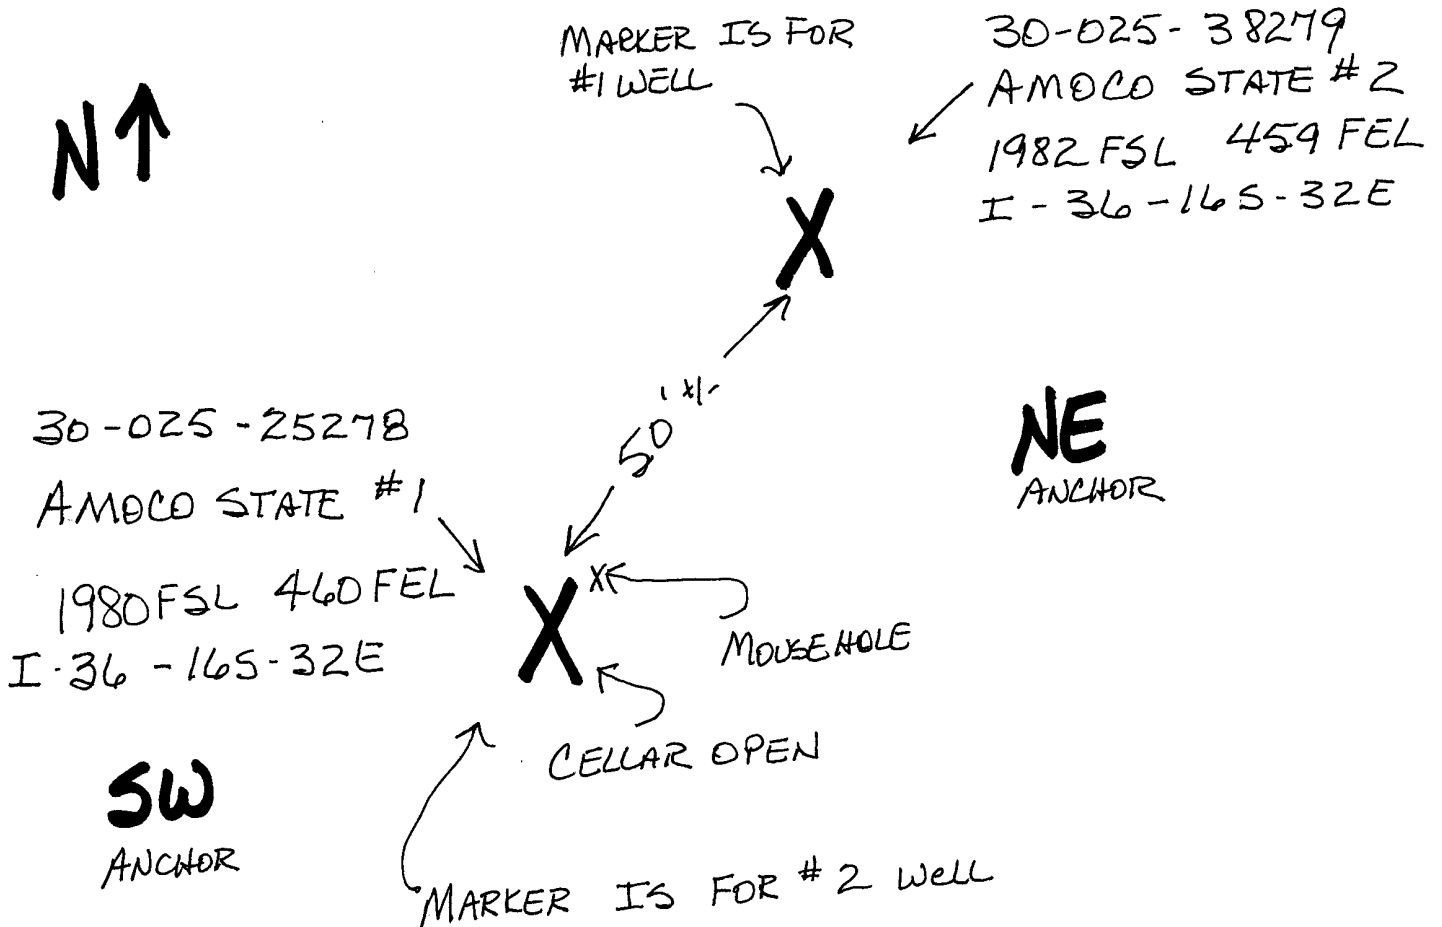 MARKER IS FOR
#1 WELL
30-025-38279
AMOCO STATE #2
1982 FSL 459 FEL
I-36-16S-32E
N
X
50' +/-
30-025-25278
AMOCO STATE #1
1980 FSL 460 FEL
I-36-16S-32E
NE
ANCHOR
X
X
MOUSEHOLE
CELLAR OPEN
SW
ANCHOR
MARKER IS FOR #2 WELL